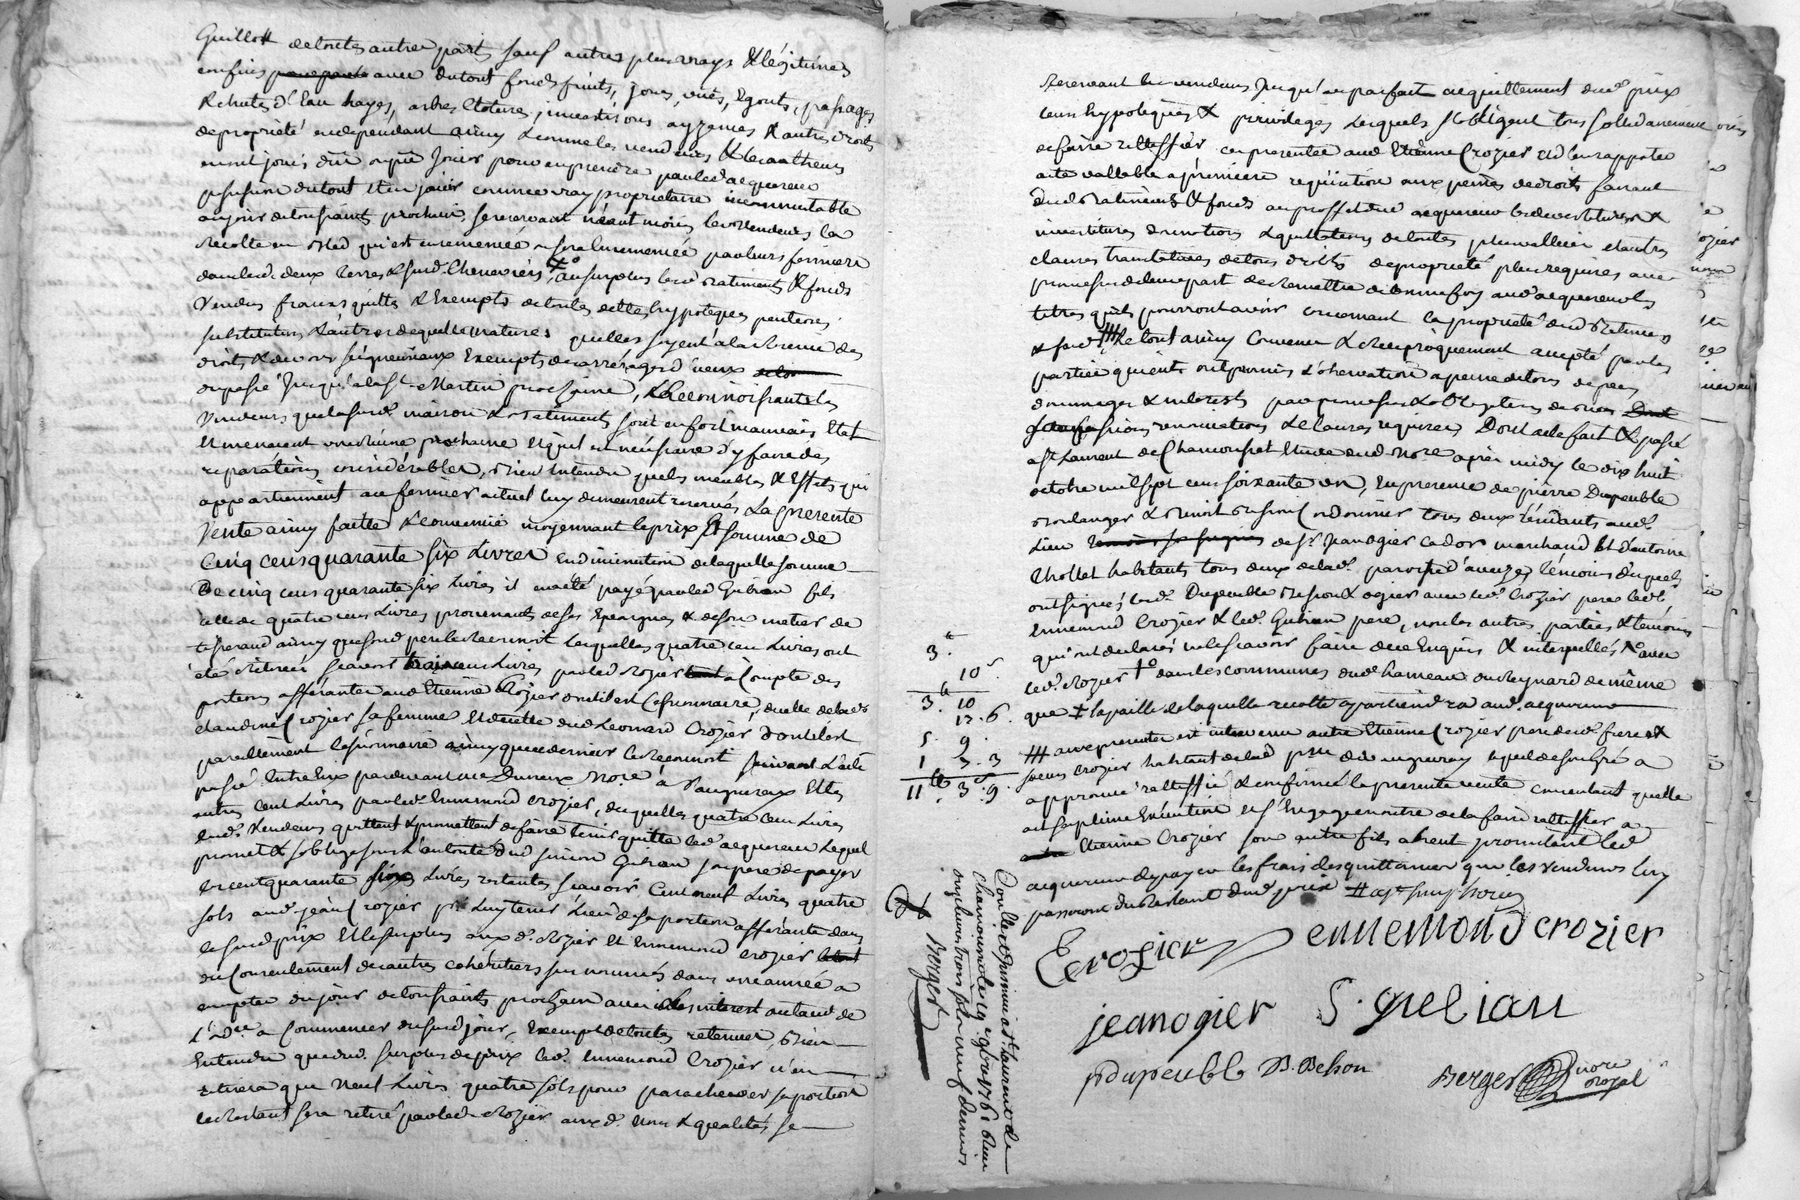 Guillot de toutes autres parts sauf autres plus vrays & légitimes
confins avec du tout fonds fruits, jours, vües, Egouts, passages
& chutes d'Eau hayes, arbres clotures, investisons ayzances & autres droits
de propriété en dependant ainsy & comme les vendeurs & leurs autheurs
en ont joui dû ou pû jouir pour en prendre par led acquereur
possession du tout & en jouir comme vray proprietaire incommutable
au jour de toussaints prochain, se reservant néant moins les vendeurs la
récolte en bled qui est ensemencée ou sera ensemencée par leurs fermiers
dans led. deux terres & susd. Cheneviers, au surplus lesd batiments & fonds
Vendus francs quittes & Exempts de toutes dettes hypoteques pentions
substitutions & autres de quelle natures quelles soyent a la reserve des
droits & devoirs seigneuriaux Exempts des arrérages d'iceux
du passé jusqu'a la St. Martin prochaine, & Reconnoissants les
Vendeurs que la susd. maison & batiments sont en fort mauvais Etat
& menacent une ruine prochaine & qu'il est néssessaire d'y faire des
reparations considérables, bien Entendu que les meubles & Effets qui
appartiennent au fermier actuel luy demeurent reservés La presente
Vente ainsy faitte & convenüe moyennant le prix Et somme de
Cinq cens quarante six Livres en diminution de laquelle somme
De cinq cens quarante six Livres il en a été payé par led Gubian fils
celle de quatre cens Livres provenants de ses Epargnes & de son metier de
tisserand ainsy que sond pere le reconnoit lesquelles quatre cens Livres ont
été retirées scavoir trois cens Livres par led Crozier a Compte des
portions afférantes aud Etienne Crozier dont il est Cessionnaire, de celle de lad.
claudine Crozier sa femme Et de celle dud Leonard Crozier dont il est
pareillement cessionnaire ainsy que ce dernier le reconnoit suivant L'acte
passé Entre Eux pardevant me Duneux Nore. a Vaugneray Et les
autres Cent Livres par led. Ennemond Crozier, desquelles quatre Cens Livres
lesd. Vendeurs quittent & promettent de faire tenir quitte led. acquereur Lequel
promet & s'oblige sous L'autorité dud simon Gubian son pere de payer
les cent quarante six Livres restantes scavoir Cent neuf Livres quatre
sols aud. jean Crozier pr. Luy tenir Lieu de sa portion afférante dans
le susd prix Et le surplus auxd. Crozier Et Ennemond Crozier
du Consentement des autres cohéritiers sus nommés dans une année a
compter du jour de toussaints prochain avec les interest au taux de
L'Ed.it a Commencer du susd jour, Exempt de toutes retenues, Bien
Entendu que dud. surplus de prix led. Ennemond Crozier n'en
retirera que Neuf Livres quatre sols pour parachever sa portion
le Restant sera retiré par led. Crozier auxd. Noms & qualités se
reservant les vendeurs Jusqu'au parfait acquittement dud. prix
leurs hypoteques & privileges Lesquels s'obligent tous sollidairement
de faire rattiffier ces presentes aud Etienne Crozier Et d'en rapporter
acte vallable a premiere requisition aux peines de droits faisant
dud. batiments & fonds au proffit dud. acquereur les devestitures &
investitures demotions & quittations de toutes plusvallües et autres
clauses translatives de tous droits de propriété plus requises avec
promesse de leur part de remettre de bonne foy aud. acquereur les
titres qu'ils pourront avoir concernant la propriété dud. Batiments
& fonds Le tout ainsy Convenu & réciproquement accepté par les
parties qui en ont promis L'observation a peine de tous depens
dommages & interests par promesses & obligations de biens
soumissions, renonciations & clauses requises Dont acte fait & passé
a St Laurent de Chamousset Etude dud. Nore. apres midy le dix huit
octobre mil sept cens soixante un, En presence de pierre Dupeuble
Boulanger & Benoit Besson Cordonnier tous deux residants aud.
Lieu de Sr. Jean Ogier Cador marchand Et d'antoine
Chollet habitants tous deux de lad. paroisse d'aveyze témoins desquels
ont signés lesd. Dupeuble Besson & ogier avec led. Crozier pere led.
Ennemond Crozier & led. Gubian pere, non les autres parties & témoins
qui ont declarés ne le scavoir faire de ce Enquis & interpellés N avec
led. Crozier † dans les communes dud. hameau du Reynard de même
que ‡ la paille de laquelle recolte appartiendra aud. acquereur
# au ces presentes est intervenu autre Etienne Crozier pere desd. freres &
soeurs Crozier habitant de lad pse. de Vaugneray lequel de son gré a
approuvé rattiffié & confirmé la presente vente consentant quelle
ait sa pleine Exécution et s'Engage en outre de la faire rattiffier a
Etienne Crozier son autre fils absent promettant led
acquereur de payer les frais des quittances que les vendeurs luy
passeront du Restant dud. prix
Crozier ennemond crozier
jean ogier S. gubian
P Dupeuble B. Besson Berger nore royal
3.
10 s
3. 10
13. 6.
5. 9.
1. 3. 3
11. 3. 9.
Controllé & insinué a St. Laurent de
Chamousset le 29 8bre 1761 Reçu
onze livres trois sols neuf deniers
Berger